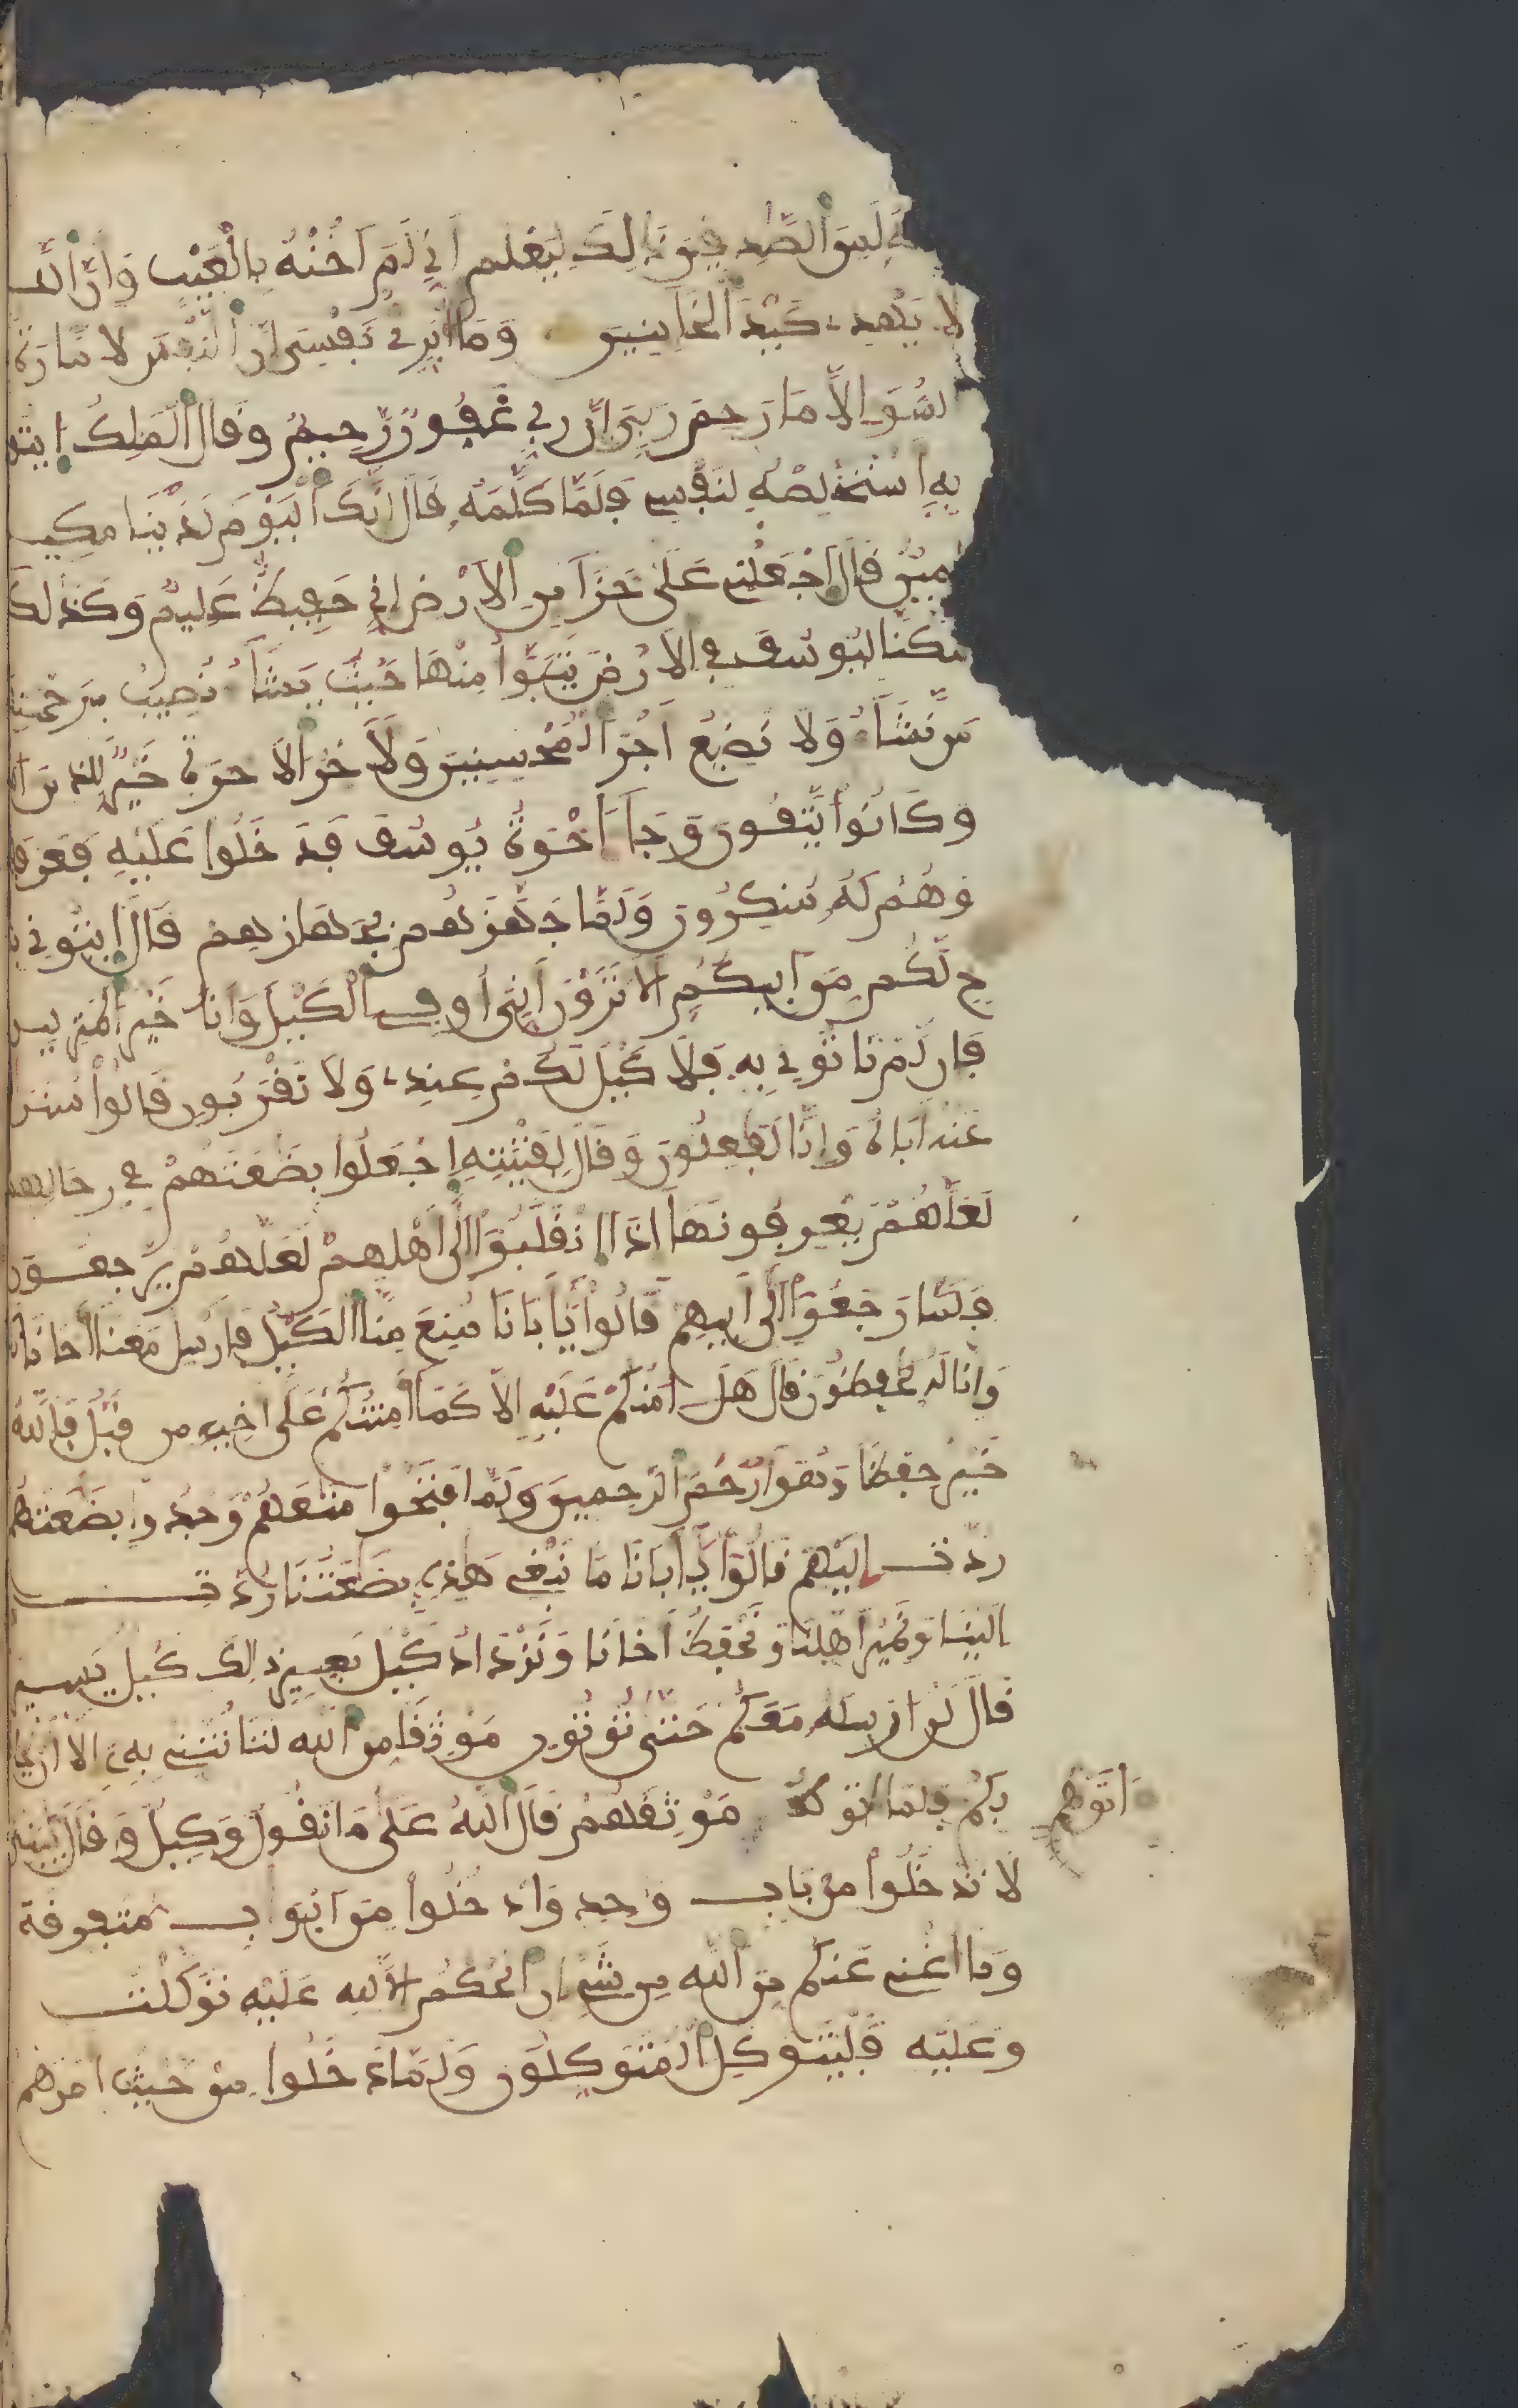 لَمِنَ الصَّٰدِفِينَ ذَالِكَ لِيَعْلَمَ أَنِّي لَمَ اَخُنْهُ بِالْغَيْبِ وَأَنَّ اَللَّهَ
لَا يَهْدِے كَيْدَ اَلْخَآئِنِينَ وَمَا أُبَرِّئُ نَفْسِيَ إِنَّ اَلنَّفْسَ لَأَمَّارَةُ
السُّوٓءِ الَّا مَا رَحِمَ رَبِّيَ إِنَّ رَبِّي غَفُورٌ رَّحِيمٌ وَقَالَ اَلْمَلِكُ ايتُو
بِهِ أَسْتَخْلِصْهُ لِنَفْسِے فَلَمَّا كَلَّمَهُ قَالَ إِنَّكَ اَلْيَوْمَ لَدَيْنَا مَكِي
أَمِينٌ قَالَ اَجْعَلْنِے عَلَىٰ خَزَآئِنِ اِلَارْضِ إِنِّي حَفِيظٌ عَلِيمٌ وَكَذَلِكَ
مَكَّنَّا لِيُوسُفَ فِے اِلَارْضِ يَتَبَوَّأُ مِنْهَا حَيْثُ يَشَآءُ نُصِيبُ بِرَحْمَتِنَا
مَن نَّشَآءُ وَلَا نُضِيعُ أَجْرَ اَلْمُحْسِنِينَ وَلَأَجْرُ اَلَاخِرَةِ خَيْرٌ لِّلذِينَ ءَا
وَكَانُواْ يَتَّقُونَ وَجَآءَ اخْوَةُ يُوسُفَ فَدَخَلُوا عَلَيْهِ فَعَرَفَ
وَهُمْ لَهُ مُنكِرُونَ وَلَمَّا جَهَّزَهُم بِجَهَازِهِمْ قَالَ اَيتُونِي بِ
خ لَّكُم مِّنَ اَبِيكُمُ أَلَا تَرَوْنَ أَنِّيَ أُوفِے اِلْكَيْلَ وَأَنَا خَيْرُ اَلْمُنزِلِين
فَإِن لَّمْ تَاتُونِي بِهِ فَلَا كَيْلَ لَكُمْ عِندِے وَلَا تَقْرَبُونِ قَالُواْ سَنُر
عَنْهُ أَبَاهُ وَإِنَّا لَفَٰعِلُونَ وَقَالَ لِفِتْيَتِهِ اِجْعَلُوا بِضَٰعَتَهُمْ فِے رِحَالِهِم
لَعَلَّهُمْ يَعْرِفُونَهَا إِذَا اَنقَلَبُواْ إِلَىٰ أَهْلِهِمْ لَعَلَّهُمْ يَرْجِعُونَ
فَلَمَّا رَجَعُوا إِلَىٰ أَبِيهِمْ قَالُواْ يَا أَبَانَا مُنِعَ مِنَّا اَلْكَيْلُ فَأَرْسِلْ مَعَنَا أَخَانَا
وَإِنَّا لَهُ لَحَٰفِظُونَ قَالَ هَلَ اٰمَنُكُمْ عَلَيْهِ إِلَّا كَمَا أَمِنتُكُمْ عَلَىٰ أَخِيهِ مِن قَبْلُ فَاللَّهُ
خَيْرٌ حِفْظًا وَهُوَ أَرْحَمُ اَلرَّٰحِمِينَ وَلَمَّا فَتَحُوا مَتَٰعَهُمْ وَجَدُوا بِضَٰعَتَهُمْ
رُدَّتِ إِلَيْهِمْ قَالُوا يَا أَبَانَا مَا نَبْغِے هَٰذِهِ بِضَٰعَتُنَا رُدَّتِ
إِلَيْنَا وَنَمِيرُ أَهْلَنَا وَنَحْفَظُ أَخَانَا وَنَزْدَادُ كَيْلَ بَعِيرٍ ذَالِكَ كَيْلٌ يَسِير
قَالَ لَنُ ارْسِلَهُ مَعَكُمْ حَتَّىٰ تُوتُونِ مَوْثِقًا مِّنَ اَللَّهِ لَتَاتُنَّنِے بِهِ إِلَّا أَن يُحَا
بِكُمْ فَلَمَّا اتوه مَوْثِقَهُمْ قَالَ اَللَّهُ عَلَىٰ مَا نَقُولُ وَكِيلٌ وَقَالَ يَٰبَنِي
اَتَوْهُم
لَا تَدْخُلُواْ مِن بَابٍ وَٰحِدٍ وَادْخُلُواْ مِنَ اَبْوَابٍ مُّتَفَرِّقَةٍ
وَمَا أُغْنِے عَنكُم مِّنَ اَللَّهِ مِن شَيْءٍ إِنِ اِلْحُكْمُ إِلَّا لِلهِ عَلَيْهِ تَوَكَّلْتُ
وَعَلَيْهِ فَلْيَتَوَكَّلِ اِلْمُتَوَكِّلُونَ وَلَمَّا دَخَلُوا مِنْ حَيْثُ أَمَرَهُمْ